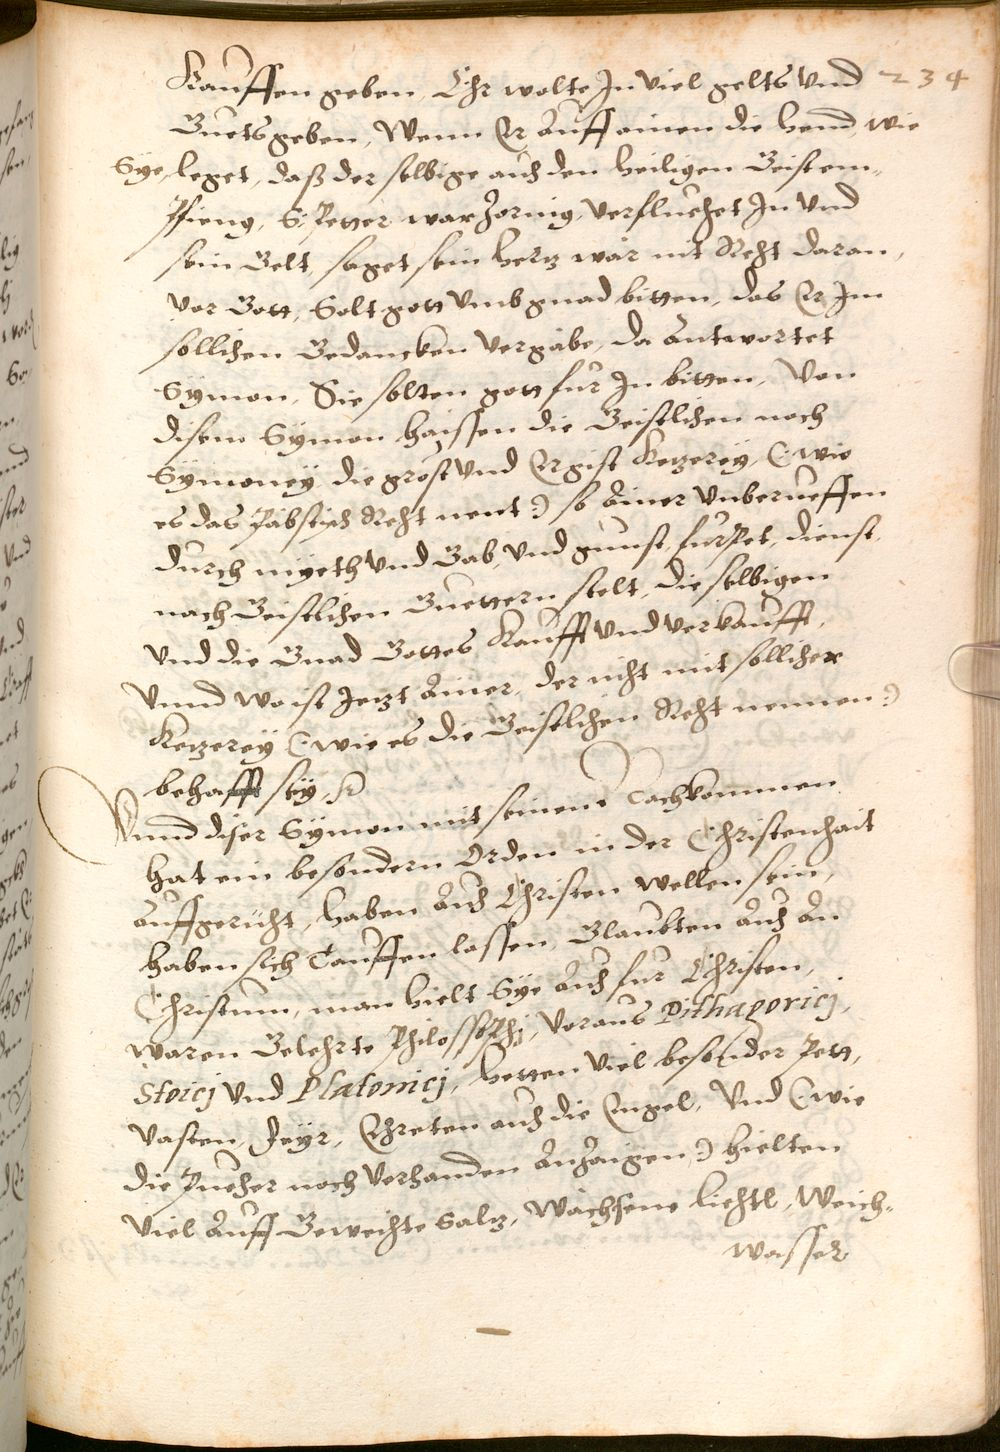 234
Kauffen geben, Ehr wolte In viel gelts Vnd
Guets geben, Wenn Er Auff ainen die hend wie
Sye, leget, daß der selbige auch den heiligen Geist em-
Pfieng, S: Petter war Zornig, Verfluchet In Vnd
sein Gelt, saget sein hertz wär nit Recht daran,
Vor Gott, Solt gott Vmb gnad bitten, das Er Im
sollichen Gedancken Vergäbe, da Antwortet
Symon, Sie solten gott für In bitten, Von
disem Symon haissen die Geistlichen noch
Symoney, die gröst Vnd Ergist Ketzerey, (: wie
es das Päbstisch Recht nent :) so Ainer Vnberueffen
durch myeth Vnd Gab, Vnd gunst, fürPet, dienst,
nach Geistlichen Guettern stelt, die selbigen
Vnd die Gnad Gottes Kaufft Vnd verkaufft,
Vnnd wo ist Jetzt Ainer, der nicht mit sollicher
Ketzerey (: wie es die Geistlichen Recht nennen :)
behafft sey,
Vnnd diser Symon mit seinem Nachkommen
hat ein besondern Orden in der Christenhait
Auffgericht, haben Auch Christen wellen sein,
haben sich Tauffen lassen, Glaubten Auch An
Christum, man hielt Sye Auch fur Christen,
waren Gelehrte Philossophj, Voraus Pithagoricj,
Stoicj Vnd Platonicj, hetten Viel besonder Pett,
Vasten, Feyr, Ehreten auch die Engel, Vnd (: wie
die Puecher noch Vorhanden Anzaigen :) hielten
Viel Auff Geweichte Saltz, Wächsene liechtl, Weich-
wasser